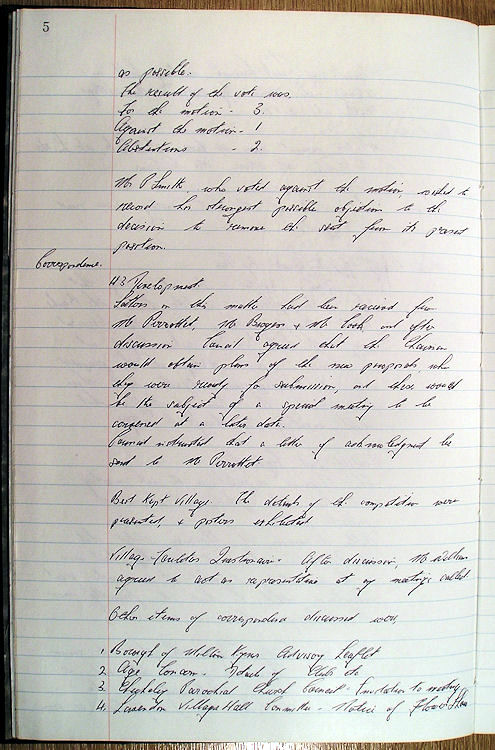 5
as possible.
The result of the vote was.
For the motion - 3.
Against the motion - 1
Abstentions - 2.
Mr P Smith, who voted against the motion, wished to
record his strongest possible objection to the
decision to remove the seat from its present
position.
Correspondence.
H3 Development.
Letters on this matter had been received from
Mr Perrottet, Mr Brogan & Mr Cook and after
discussion Council agreed that the Chairman
would obtain plans of the new proposals when
they were ready for submission, and these would
be the subject of a special meeting to be
convened at a later date.
Council instructed that a letter of acknowledgment be
sent to Mr Perrottet.
Best Kept Village. The details of the competition were
presented, & posters exhibited
Village Facilities Questionnaire - After discussion, Mr
agreed to act as representative at any meetings called
Other items of correspondence discussed were,
1. Borough of Milton Keynes Advisory Leaflet
2. Age Concern - Details of Clubs etc
3. Parochial Church Council - Invitation to meeting
4. Lavendon Village Hall Committee - Notice of Flower Show